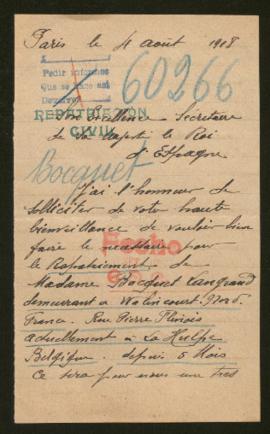 Paris le 4 août 1918
Pedir informes
Que se pase así
60266
Son Excellence Secrétaire
REPATRIACION
CIVIL
de Sa Majesté le Roi
d'Espagne
Bocquet
J'ai l'honneur de
solliciter de votre haute
bienveillance de vouloir bien
faire le nécessaire pour
Fecho
le Rapatriement de
Madame Bocquet Langrand
demeurant à Walincourt. Nord.
France. Rue Pierre
actuellement à La Hulpe
Belgique. depuis 5 Mois
Ce sera pour nous une très